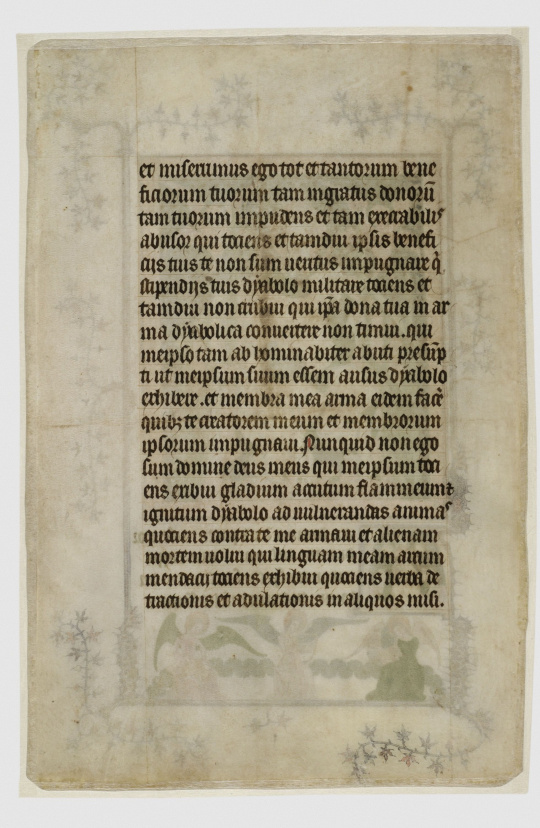 et miserrimus ego tot et tantorum bene
ficiorum tuorum tam ingratus donorū
tam tuorum impudens et tam execrabilis
abusor qui tociens et tamdiu ipsis benefi
cijs tuis te non sum ueritus impugnare q̇
stipendijs tuis dyabolo militare tociens et
tamdiu non erubui qui ip̄a dona tua in ar
ma dyabolica conuertere non timui. qui
meipso tam abhominabiliter abuti presūp
ti ut meipsum suum essem ausus dyabolo
exhibere. et membra mea arma eidem facē
quibꝫ te creatorem meum et membrorum
ipsorum impugnaui. Nunquid non ego
sum domine deus meus qui meipsum toci
ens exibui gladium accutum flammeum ⁊
ignitum dyabolo ad uulnerandas animas
quociens contra te me armaui et alienam
mortem uolui qui linguam meam arcum
mendacij tociens exhibui quociens uerba de
tractionis et adulationis in aliquos misi.